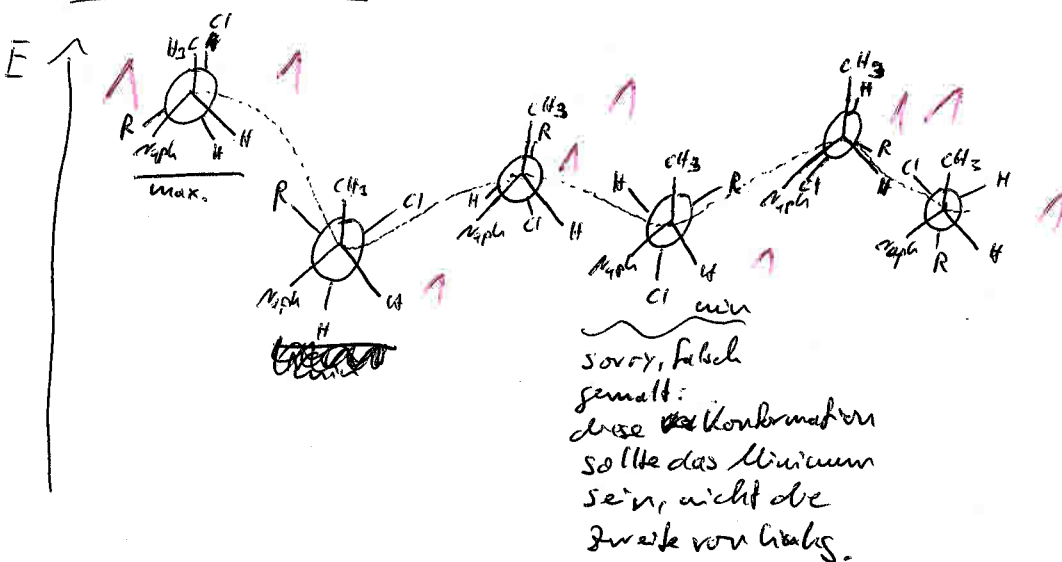 E
Cl
H₃C
R
Naph
H
H
max.
1
1
R
CH₃
Cl
Naph
H
H
1
CH₃
R
H
Naph
Cl
H
1
1
H
CH₃
R
Naph
H
Cl
1
min
sorry, falsch
gemalt:
diese Konformation
sollte das Minimum
sein, nicht die
zweite von links.
CH₃
H
R
Naph
Cl
H
1
1
Cl
CH₃
H
Naph
R
H
1